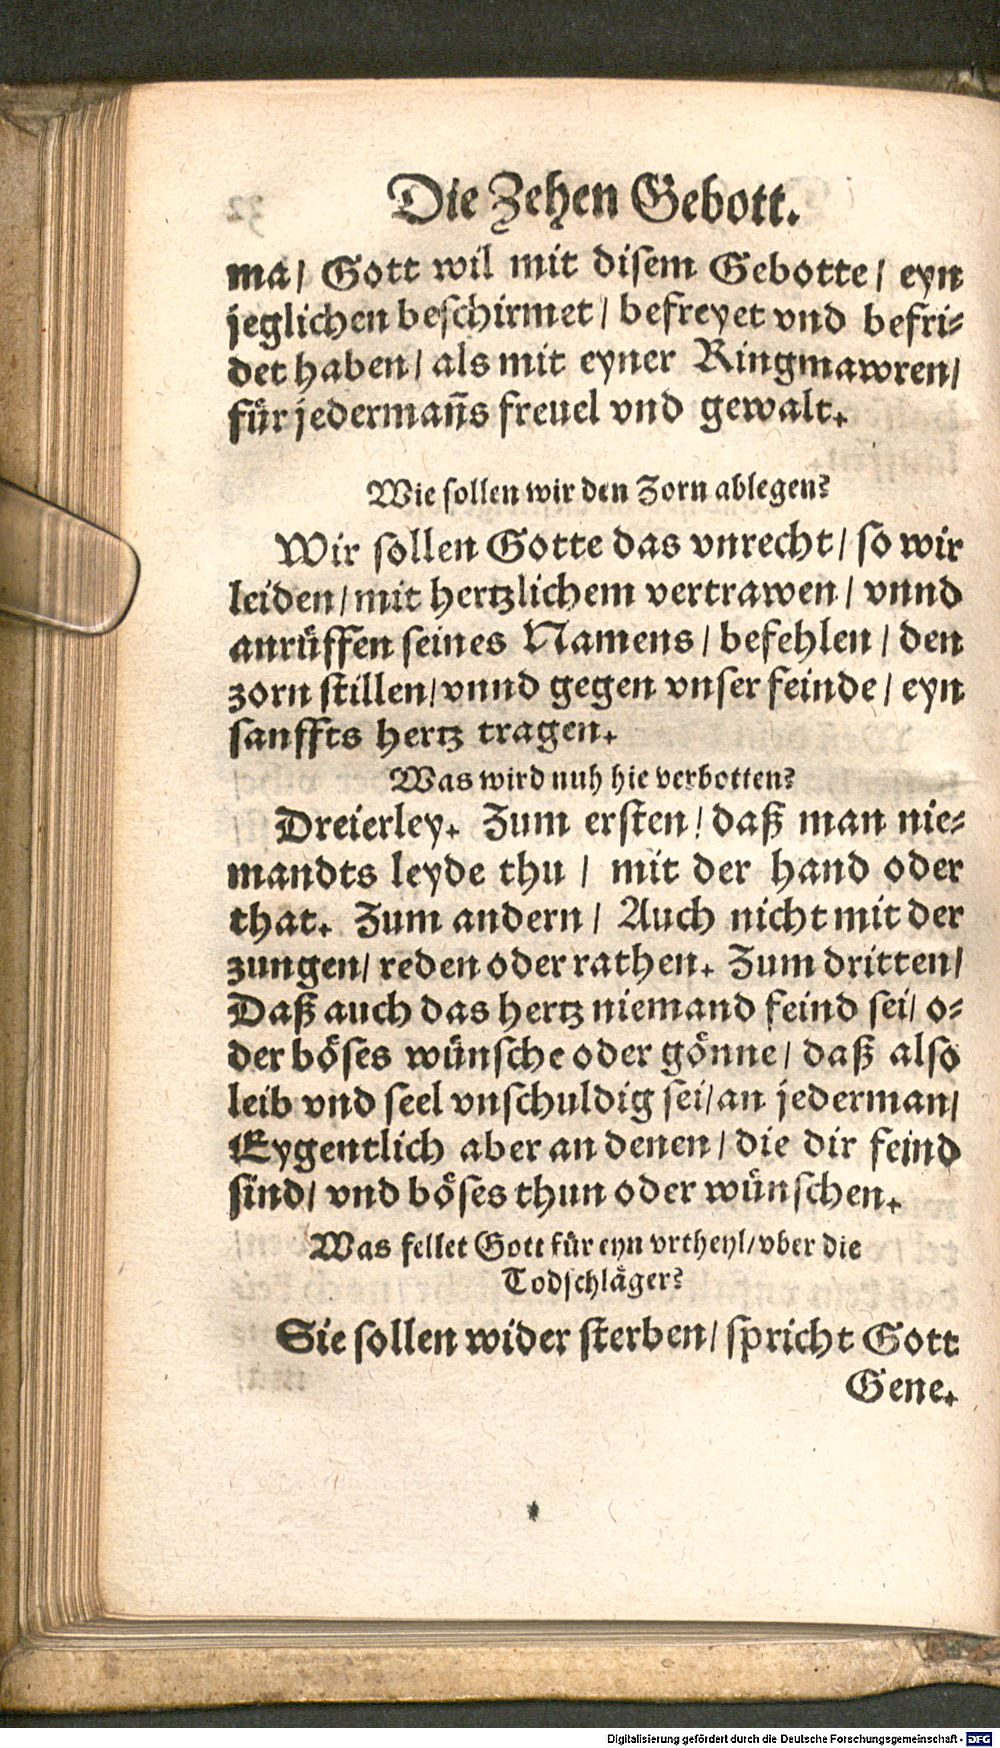 Die Zehen Gebott.
ma/ Gott wil mit disem Gebotte/ eyn
jeglichen beschirmet/ befreyet vnd befri-
det haben/ als mit eyner Ringmawren/
für jedermañs freuel vnd gewalt.
Wie sollen wir den Zorn ablegen?
Wir sollen Gotte das vnrecht/ so wir
leiden/ mit hertzlichem vertrawen/ vnnd
anrüffen seines Namens/ befehlen/ den
zorn stillen/ vnnd gegen vnser feinde/ eyn
sanffts hertz tragen.
Was wird nuh hie verbotten?
Dreierley. Zum ersten/ daß man nie-
mandts leyde thu/ mit der hand oder
that. Zum andern/ Auch nicht mit der
zungen/ reden oder rathen. Zum dritten/
Daß auch das hertz niemand feind sei/ o-
der böses wünsche oder gönne/ daß also
leib vnd seel vnschuldig sei/ an jederman/
Eygentlich aber an denen/ die dir feind
sind/ vnd böses thun oder wünschen.
Was fellet Gott für eyn vrtheyl/ vber die
Todschläger?
Sie sollen wider sterben/ spricht Gott
Gene.
Digitalisierung gefördert durch die Deutsche Forschungsgemeinschaft - DFG